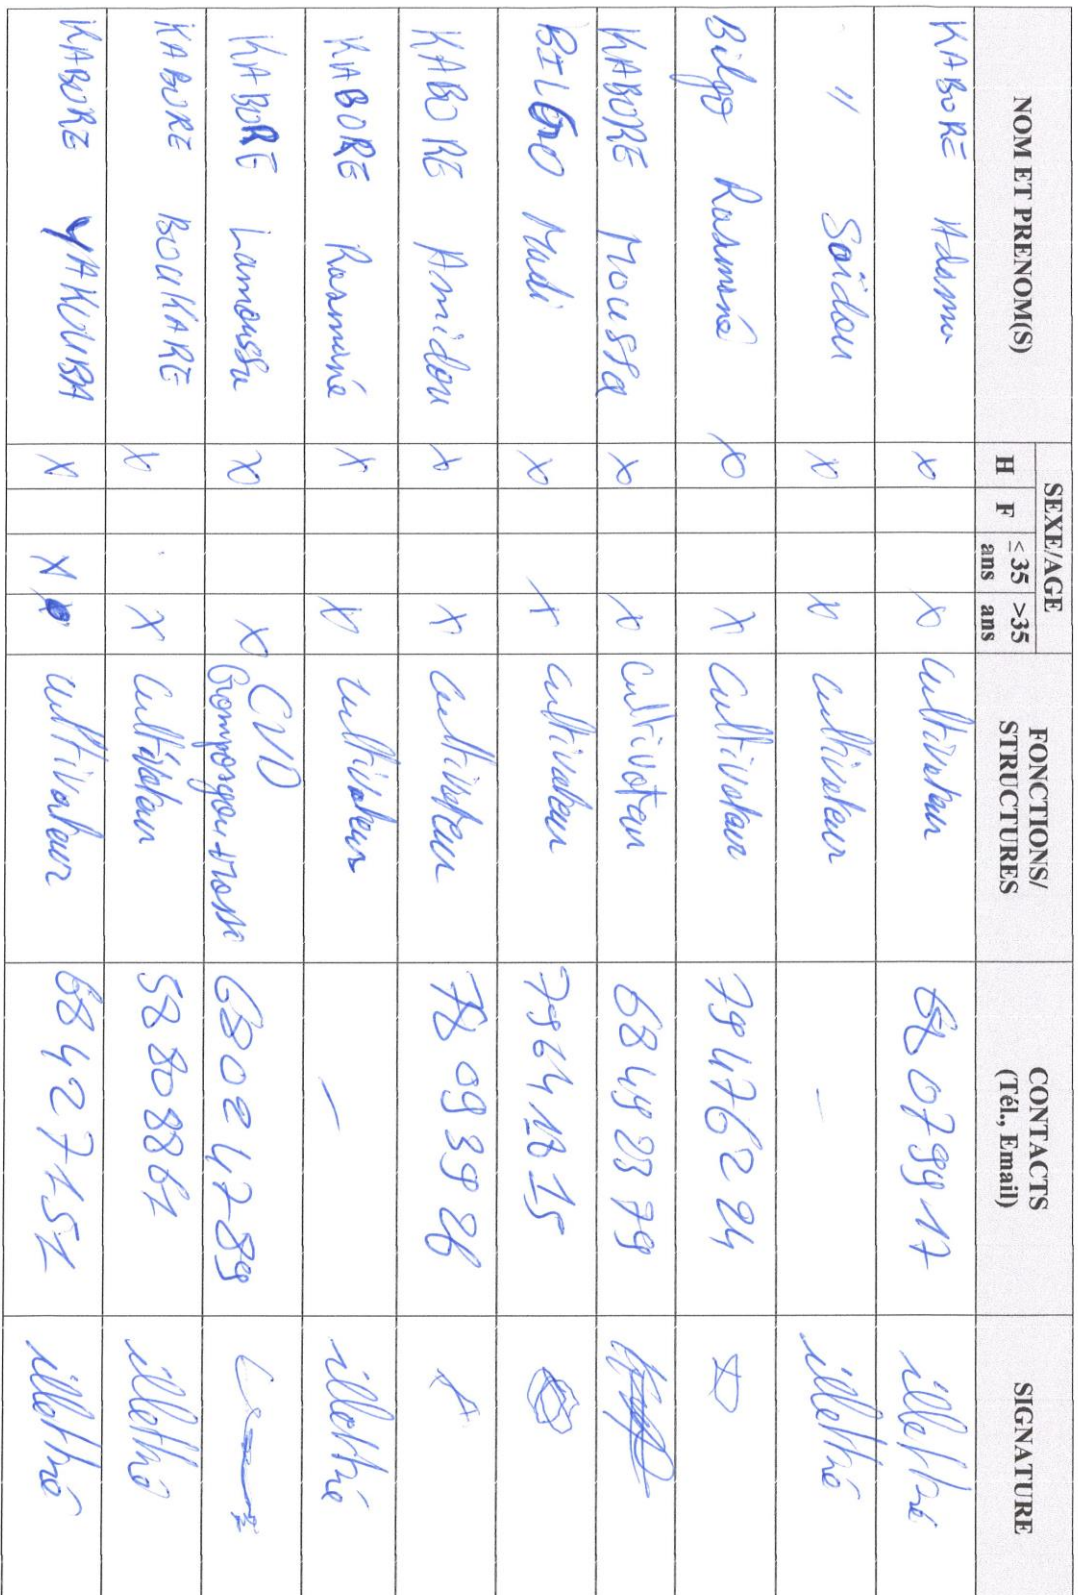 NOM ET PRENOM(S) SEXE/AGE FONCTIONS/ STRUCTURES CONTACTS (Tél., Email) SIGNATURE
H F ≤ 35 ans >35 ans
KABORE Adama x x cultivateur 68 07 99 17 illettré
" Saïdou x x cultivateur - illettré
Bilgo Rasmané x x cultivateur 79 47 62 24
KABORE Moussa x x cultivateur 68 49 23 79
BILGO Madi x x cultivateur 79 64 18 15
KABORE Amidou x x cultivateur 78 09 39 26
KABORE Rasmané x x cultivateur - illettré
KABORE Lamoussa x x CVD 68 02 47 89
KABORE BOUKARE x x cultivateur 58 80 88 61 illettré
KABORE YAKOUBA x x cultivateur 68 42 71 51 illettré